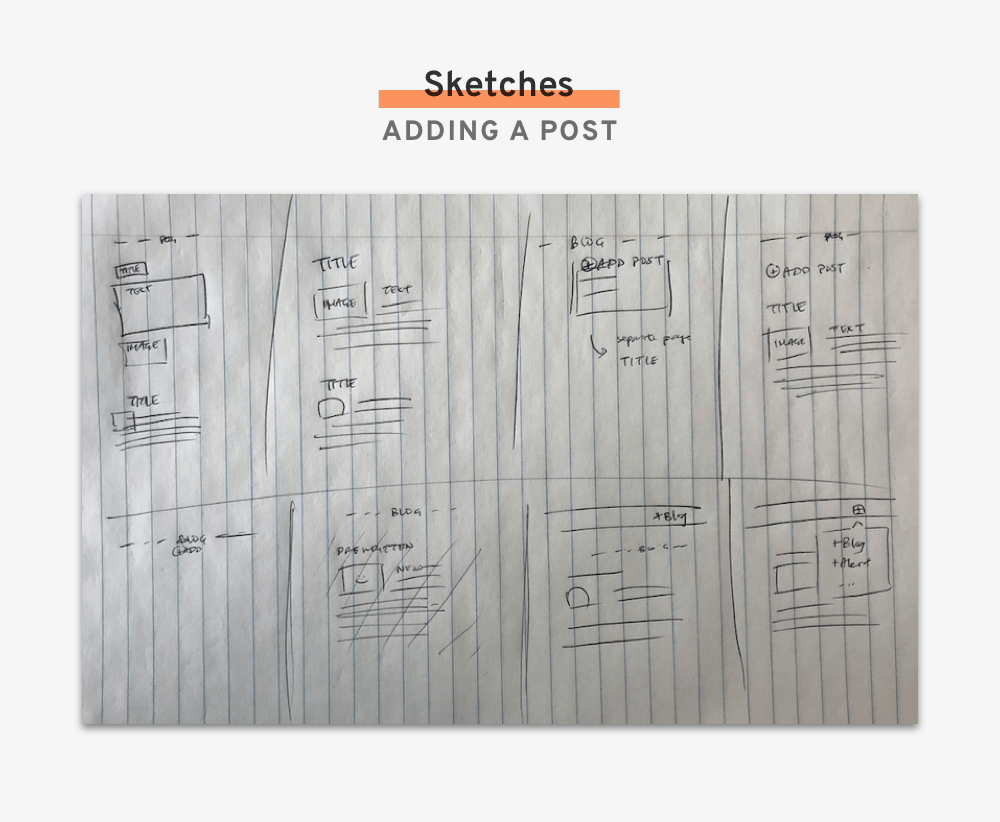 Sketches
ADDING A POST
BLOG
TITLE
TEXT
IMAGE
TITLE
TITLE
IMAGE
TEXT
TITLE
BLOG
ADD POST
separate page
TITLE
BLOG
ADD POST
TITLE
IMAGE
TEXT
BLOG
ADD
BLOG
PREWRITTEN
NEW
+Blog
BLOG
+Blog
+Alert
...